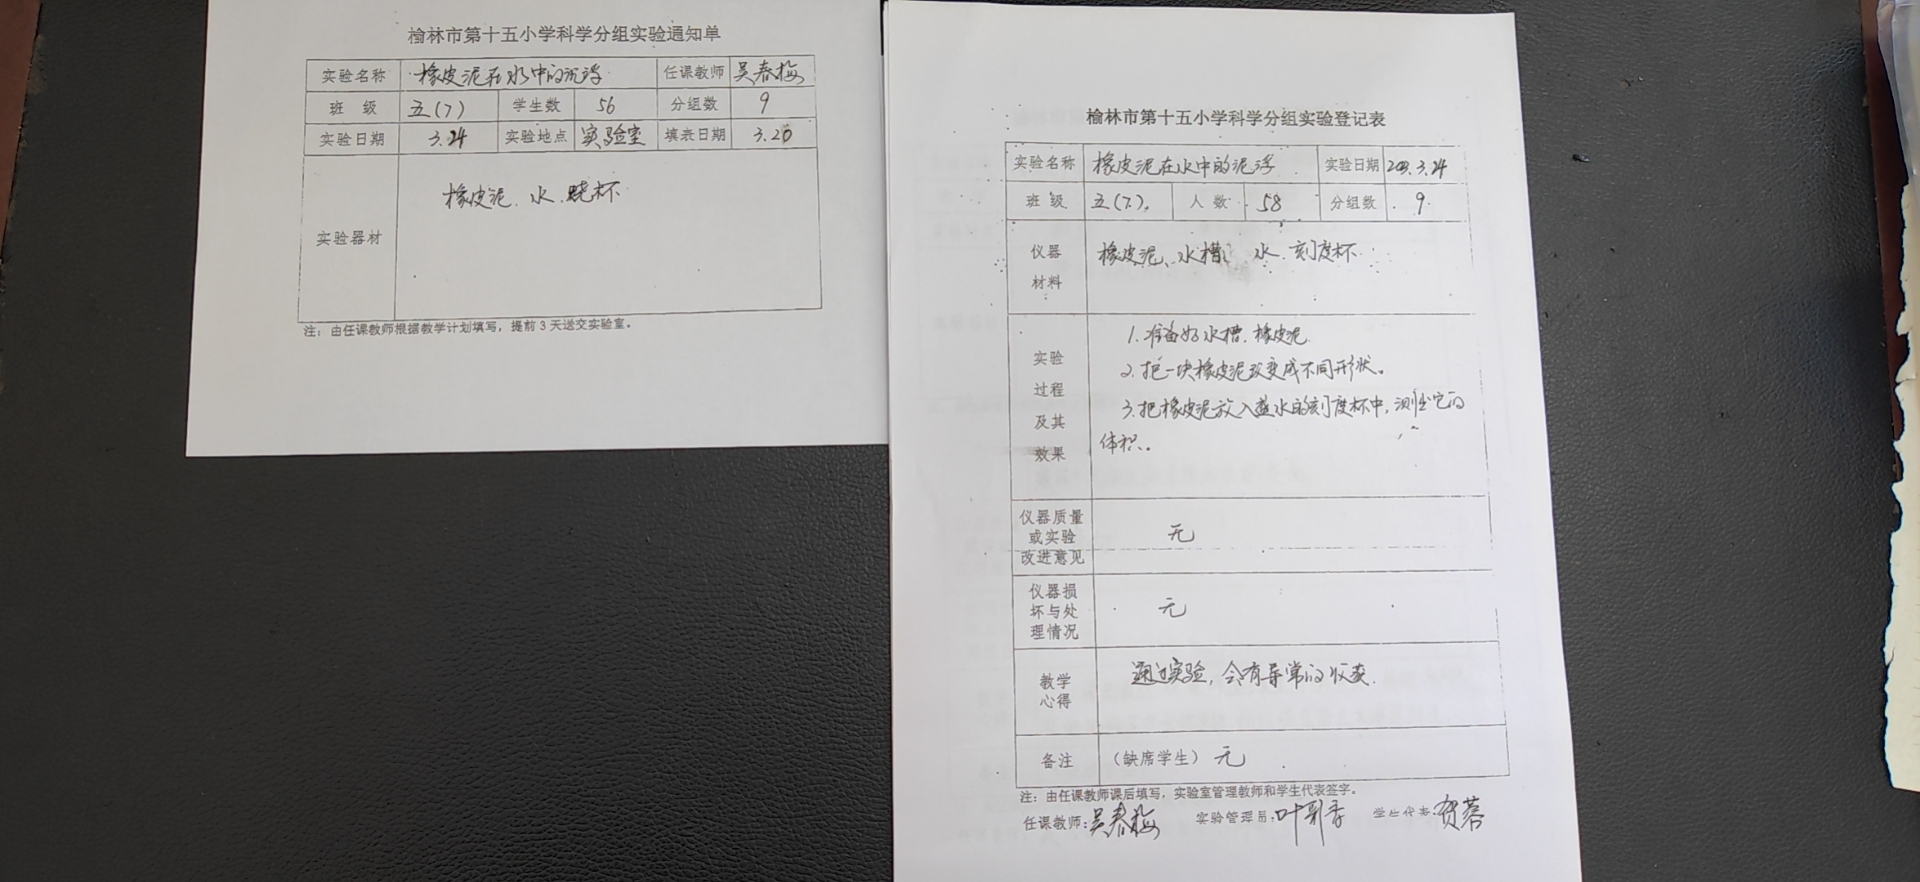 榆林市第十五小学科学分组实验通知单
实验名称 橡皮泥在水中的沉浮 任课教师 吴春梅
班 级 五(7) 学生数 56 分组数 9
实验日期 3.24 实验地点 实验室 填表日期 3.20
实验器材 橡皮泥、水、烧杯
注：由任课教师根据教学计划填写，提前3天送交实验室。
榆林市第十五小学科学分组实验登记表
实验名称 橡皮泥在水中的泥浮 实验日期 3.24
班 级 五(7) 人 数 58 分组数 9
仪器材料 橡皮泥、水槽、水、刻度杯
实验过程及其效果
1.准备好水槽、橡皮泥
2.把一块橡皮泥改变成不同形状。
3.把橡皮泥放入盛水的刻度杯中，测出它的
体积。
仪器质量或实验改进意见 无
仪器损坏与处理情况 无
教学心得 通过实验，会有异常的收获.
备注 (缺席学生) 无
注：由任课教师课后填写，实验室管理教师和学生代表签字。
任课教师：吴春梅 实验管理员：叶 学生代表：贺蓉